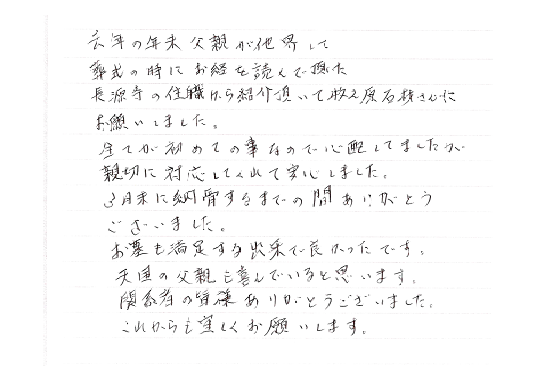 去年の年末父親が他界して
葬式の時にお経を読んで頂た
長源寺の住職から紹介頂いて牧之原石材さんに
お願いしました。
全てが初めての事なので心配してましたが
親切に対応してくれて安心しました。
3月末に納骨するまでの間ありがとう
ございました。
お墓も満足する出来で良かったです。
天国の父親も喜んでいると思います。
関係者の皆様ありがとうございました。
これからも宜しくお願いします。